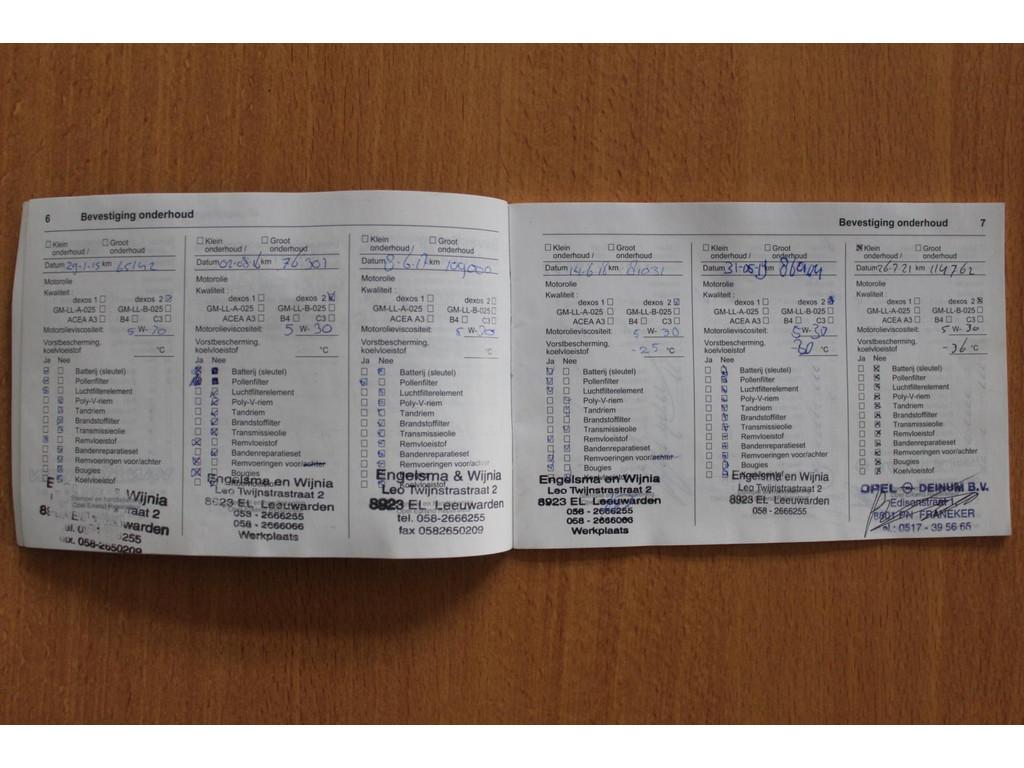 6 Bevestiging onderhoud
☐ Klein onderhoud / ☐ Groot onderhoud
Datum 29-1-15 km 65142
Motorolie
Kwaliteit :
dexos 1 ☐ dexos 2 ☑
GM-LL-A-025 ☐ GM-LL-B-025 ☐
ACEA A3 ☐ B4 ☐ C3 ☐
Motorolieviscositeit: 5 W-30
Vorstbescherming,
koelvloeistof °C
Ja Nee
Batterij (sleutel)
Pollenfilter
Luchtfilterelement
Poly-V-riem
Tandriem
Brandstoffilter
Transmissieolie
Remvloeistof
Bandenreparatieset
Remvoeringen voor/achter
Bougies
Koelvloeistof
Wijnia
raat 2
warden
255
fax. 058-2650209
☐ Klein onderhoud / ☐ Groot onderhoud
Datum 02-08-16 km 76301
Motorolie
Kwaliteit :
dexos 1 ☐ dexos 2 ☑
GM-LL-A-025 ☐ GM-LL-B-025 ☐
ACEA A3 ☐ B4 ☐ C3 ☐
Motorolieviscositeit: 5 W-30
Vorstbescherming,
koelvloeistof °C
Ja Nee
Batterij (sleutel)
Pollenfilter
Luchtfilterelement
Poly-V-riem
Tandriem
Brandstoffilter
Transmissieolie
Remvloeistof
Bandenreparatieset
Remvoeringen voor/achter
Bougies
Engelsma en Wijnia
Leo Twijnstrastraat 2
8923 EL Leeuwarden
058 - 2666255
058 - 2666066
Werkplaats
☐ Klein onderhoud / ☐ Groot onderhoud
Datum 8-6-17 km 109,000
Motorolie
Kwaliteit :
dexos 1 ☐ dexos 2 ☐
GM-LL-A-025 ☐ GM-LL-B-025 ☐
ACEA A3 ☐ B4 ☐ C3 ☐
Motorolieviscositeit: 5 W-30
Vorstbescherming,
koelvloeistof °C
Ja Nee
Batterij (sleutel)
Pollenfilter
Luchtfilterelement
Poly-V-riem
Tandriem
Brandstoffilter
Transmissieolie
Remvloeistof
Bandenreparatieset
Remvoeringen voor/achter
Engelsma & Wijnia
Leo Twijnstrastraat 2
8923 EL Leeuwarden
tel. 058-2666255
fax 0582650209
Bevestiging onderhoud 7
☐ Klein onderhoud / ☐ Groot onderhoud
Datum 14-6-18 km 81031
Motorolie
Kwaliteit :
dexos 1 ☐ dexos 2 ☑
GM-LL-A-025 ☐ GM-LL-B-025 ☐
ACEA A3 ☐ B4 ☐ C3 ☐
Motorolieviscositeit: 5 W-30
Vorstbescherming,
koelvloeistof -25 °C
Ja Nee
Batterij (sleutel)
Pollenfilter
Luchtfilterelement
Poly-V-riem
Tandriem
Brandstoffilter
Transmissieolie
Remvloeistof
Bandenreparatieset
Remvoeringen voor/achter
Bougies
Engelsma en Wijnia
Leo Twijnstrastraat 2
8923 EL Leeuwarden
058 - 2666255
058 - 2666066
Werkplaats
☐ Klein onderhoud / ☐ Groot onderhoud
Datum 31-05-19 km
Motorolie
Kwaliteit :
dexos 1 ☐ dexos 2 ☑
GM-LL-A-025 ☐ GM-LL-B-025 ☐
ACEA A3 ☐ B4 ☐ C3 ☐
Motorolieviscositeit: 5W-30
Vorstbescherming,
koelvloeistof -30 °C
Ja Nee
Batterij (sleutel)
Pollenfilter
Luchtfilterelement
Poly-V-riem
Tandriem
Brandstoffilter
Transmissieolie
Remvloeistof
Bandenreparatieset
Remvoeringen voor/achter
Bougies
Engelsma en Wijnia
Leo Twijnstrastraat 2
8923 EL Leeuwarden
058 - 2666255
☒ Klein onderhoud / ☐ Groot onderhoud
Datum 26-7-21 km 114762
Motorolie
Kwaliteit :
dexos 1 ☐ dexos 2 ☒
GM-LL-A-025 ☐ GM-LL-B-025 ☐
ACEA A3 ☐ B4 ☐ C3 ☐
Motorolieviscositeit: 5 W-30
Vorstbescherming,
koelvloeistof -36 °C
Ja Nee
Batterij (sleutel)
Pollenfilter
Luchtfilterelement
Poly-V-riem
Tandriem
Brandstoffilter
Transmissieolie
Remvloeistof
Bandenreparatieset
Remvoeringen voor/achter
Bougies
Koelvloeistof
OPEL DEINUM B.V.
Edisonstraat
8801 PN FRANEKER
tel.: 0517 - 39 56 65